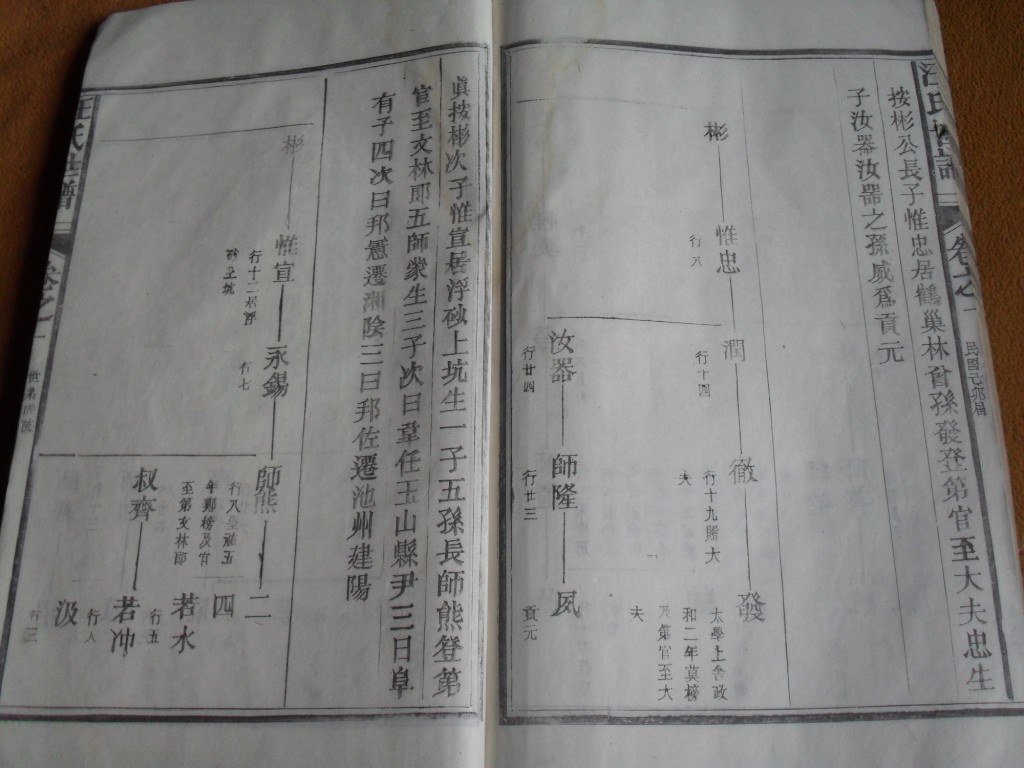 汪氏世譜
卷之一
民國乙卯届
按彬公長子惟忠居鶴巢林貧孫發登第官至大夫忠生
子汝器汝器之孫威為貢元
彬
惟忠
行八
潤
行十四
徹
行十九贈大
夫
發
太學上舍政
和二年莫榜
及第官至大
夫
汝器
行廿四
師隆
行廿三
夙
貢元
真按彬次子惟宣居浮砂上坑生一子五孫長師熊登第
官至文林郎五師衆生三子次曰韋任玉山縣尹三曰阜
有子四次曰邦憲遷湘陰三曰邦佐遷池州建陽
彬
惟宣
行十二居浮
砂上坑
永錫
行七
師熊
行八
年鄭榜及官
至第文林郎
二
四
若水
行五
叔齊
若冲
行八
汲
行三
汪氏世譜
卷之一